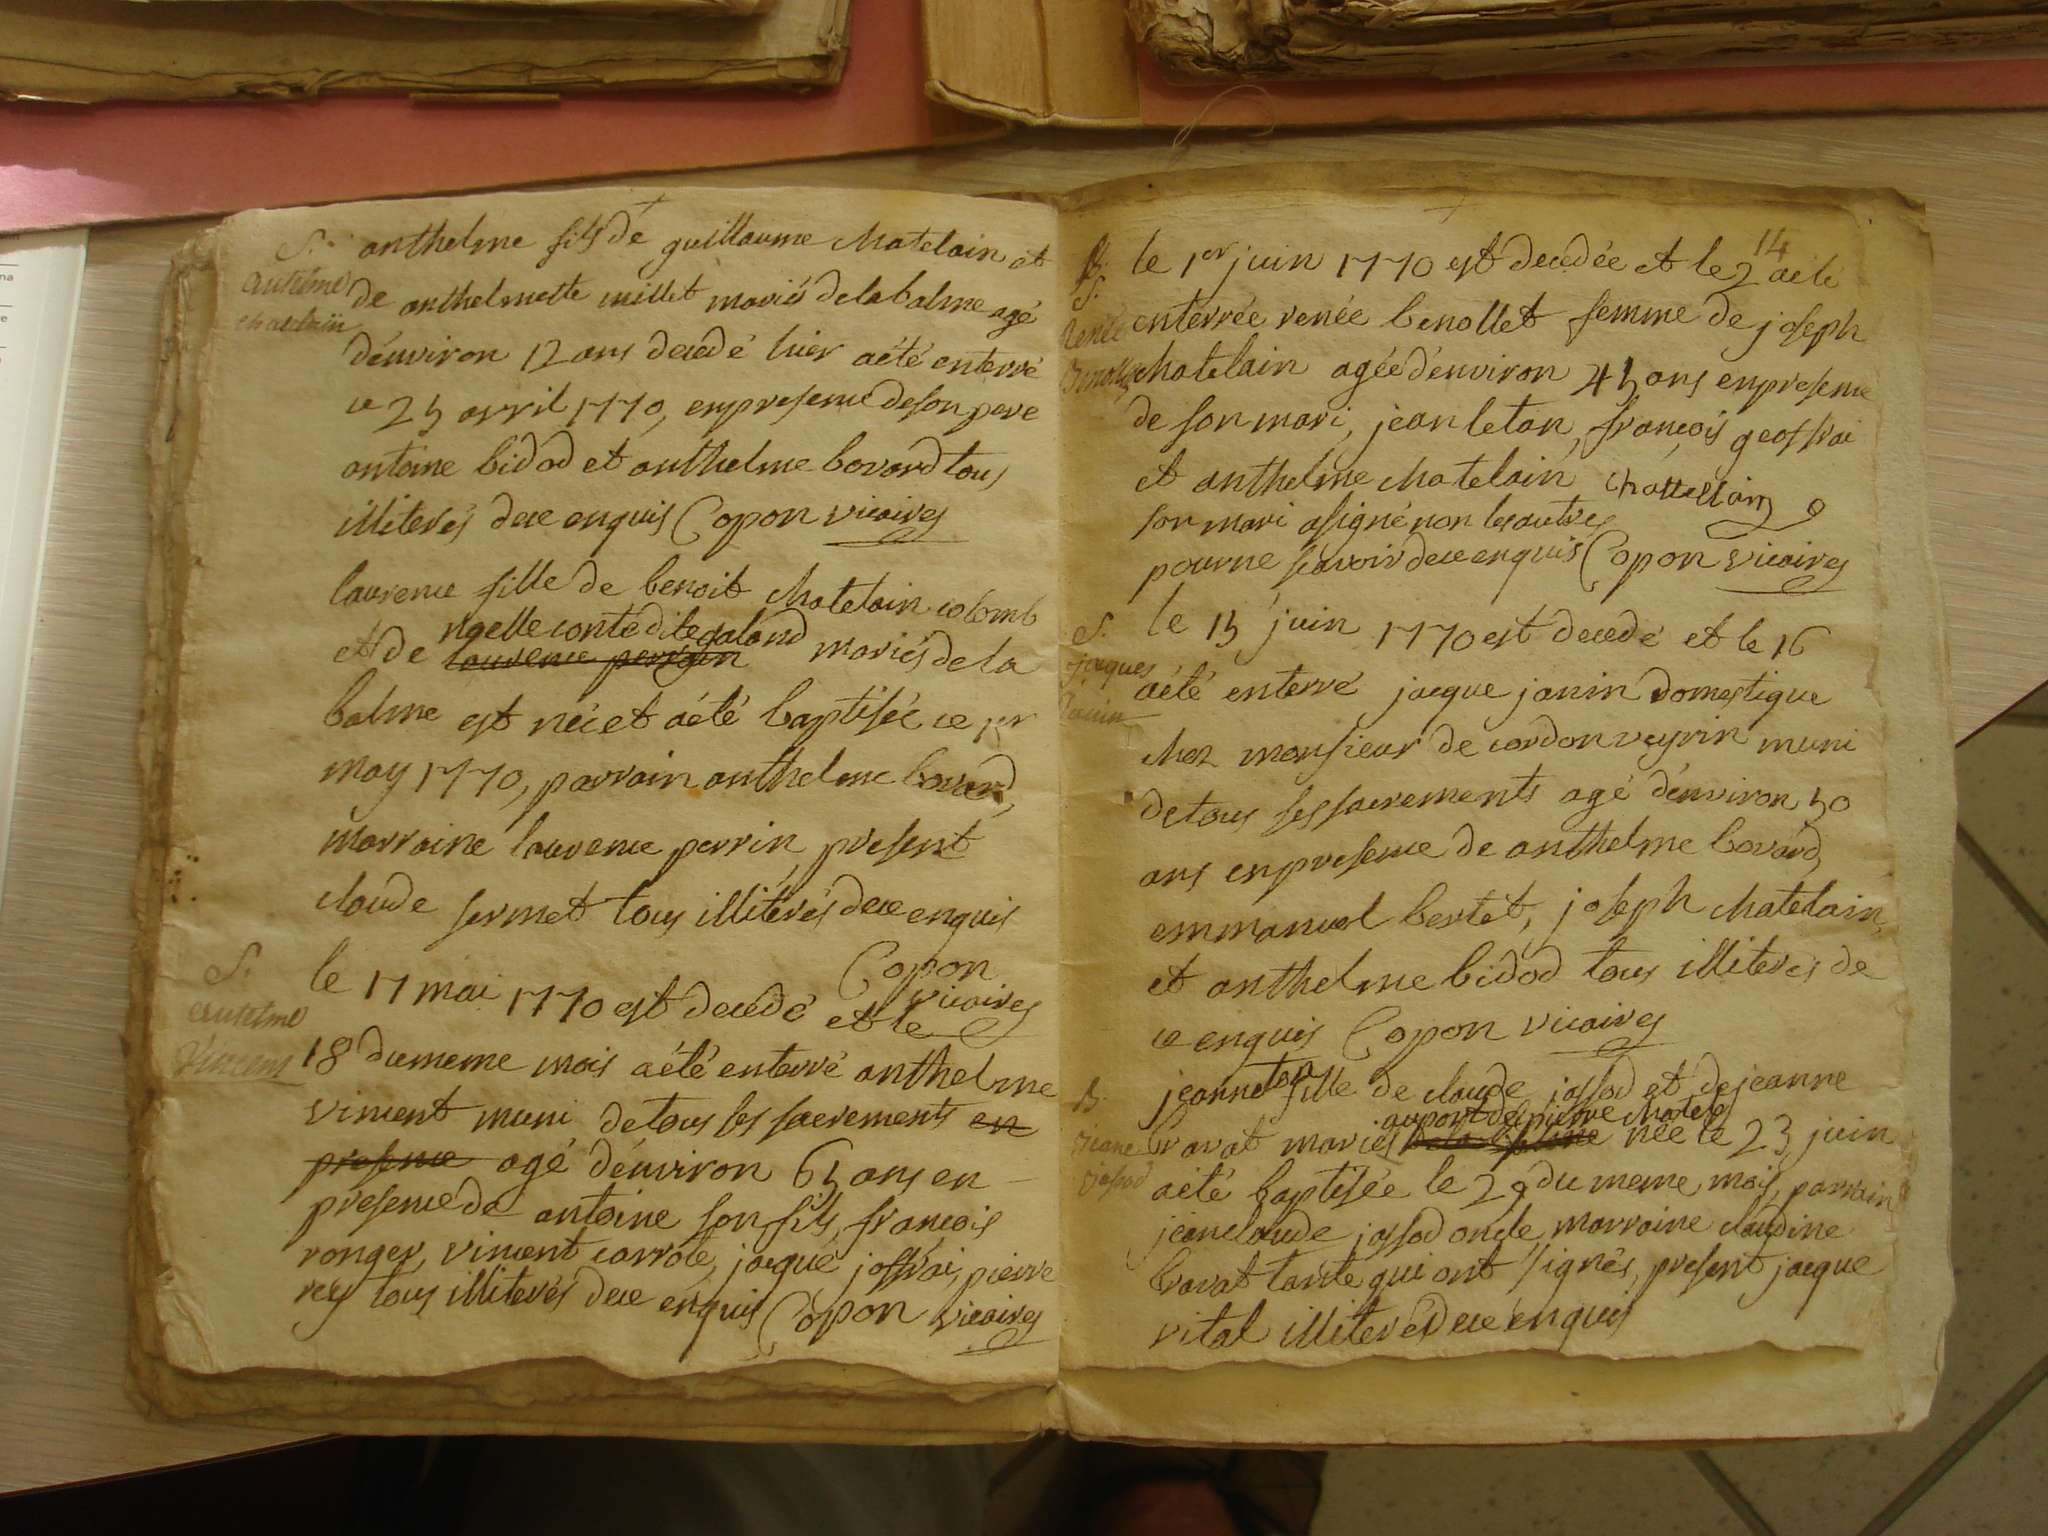 S.
antelme
chatelain
anthelme fils de guillaume chatelain et
de anthelmette millet mariés delabalme agé
d'environ 12 ans decedé hier aété enterré
ce 25 avril 1770, enpresence deson pere
antoine bidod et anthelme bovard tous
illiterés dece enquis Copon vicaires
laurence fille de benoit chatelain colomb
et de laurence perrain noelle conte dite galand mariés de la
balme est née et aété baptisée ce 1er
may 1770, parrain anthelme bovard,
marraine laurence perrin, present
claude sermet tous illiterés dece enquis
Copon
vicaires
S.
antelme
vincent
le 17 mai 1770 est decedé et le
18 dumeme mois aété enterré anthelme
vincent muni detous ses sacrements en
presence agé d'environ 65 ans en
presence de antoine son fils, françois
ronger, vincent carrote, jacque joffrai, pierre
rey tous illiterés dece enquis Copon vicaires
14
S.
renée
benollet
le 1er juin 1770 est decedée et le 2 aété
enterrée renée benollet femme de joseph
chatelain agée d'environ 45 ans enpresence
de son mari, jean letan, françois geoffrai
et anthelme chatelain chattellain
son mari asigné non les autres
pour ne scavoir dece enquis Copon vicaires
S.
jacques
janin
le 15 juin 1770 est decedé et le 16
aété enterré jacque janin domestique
chez monsieur de cordon veyrin muni
detous ses sacrements agé d'environ 50
ans enpresence de anthelme bovard,
emmanuel bertet, joseph chatelain,
et anthelme bidod tous illiterés de
ce enquis Copon vicaires
B.
jeane
jossod
jeanneton fille de claude jossod et de jeanne
bravat mariés au port de pierre chatel née le 23 juin
aété baptisée le 29 du meme mois, parrain
jeanclaude jossod oncle, marraine claudine
bravat tante qui ont signés, present jacque
vital illiterés dece enquis